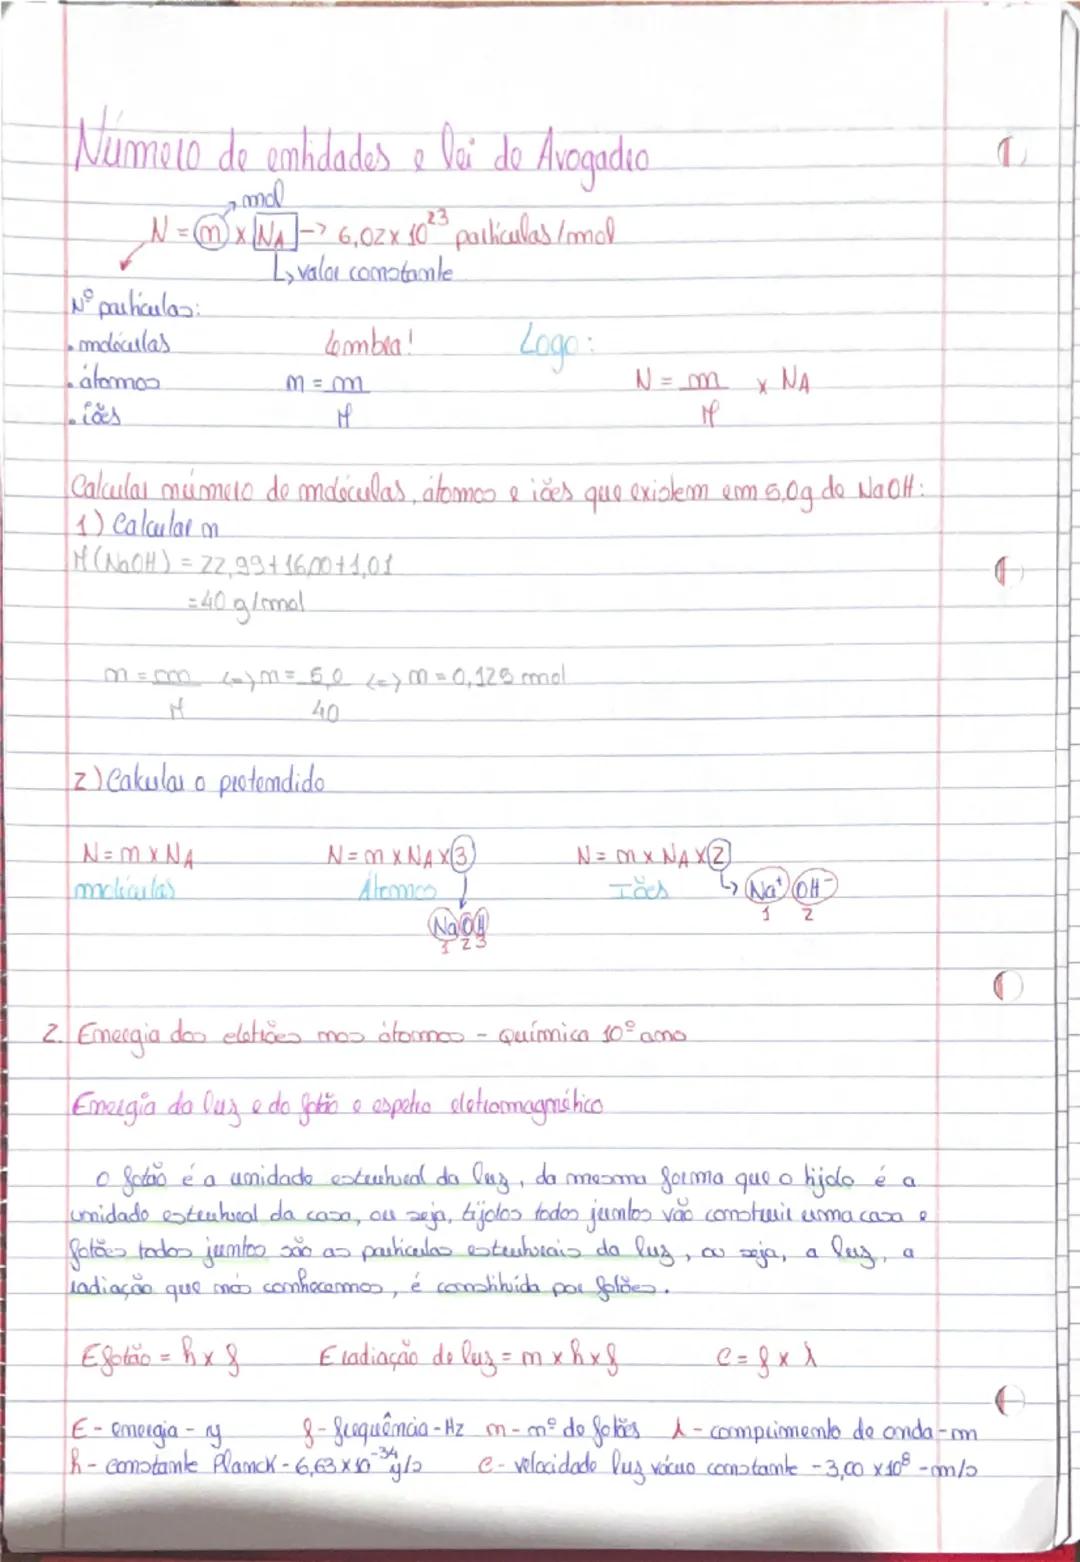 Número de entidades e lei de Avogadro
mol
N = n x NA -> 6,02 x 10²³ partículas/mol
↳ valor constante
Nº partículas:
• moléculas Lembra! Logo:
• átomos n = m/M N = m/M x NA
• iões
Calcular número de moléculas, átomos e iões que existem em 5,0g de NaOH:
1) Calcular n
M(NaOH) = 22,99 + 16,00 + 1,01
= 40 g/mol
n = m/M <=> n = 5,0/40 <=> n = 0,125 mol
2) Calcular o pretendido
N = n x NA N = n x NA x 3 N = n x NA x 2
moléculas Átomos Iões ↳ Na⁺ OH⁻
1 2
NaOH
1 2 3
2. Energia dos eletrões nos átomos - Química 10º ano
Energia da luz e do fotão e espetro eletromagnético
O fotão é a unidade estrutural da luz, da mesma forma que o tijolo é a
unidade estrutural da casa, ou seja, tijolos todos juntos vão construir uma casa e
fotões todos juntos são as partículas estruturais da luz, ou seja, a luz, a
radiação que nós conhecemos, é constituída por fotões.
Efotão = h x f E radiação de luz = n x h x f c = f x λ
E - energia - J f - frequência - Hz n - nº de fotões λ - comprimento de onda - m
h - constante Planck - 6,63 x 10⁻³⁴ J/s c - velocidade luz vácuo constante - 3,00 x 10⁸ - m/s